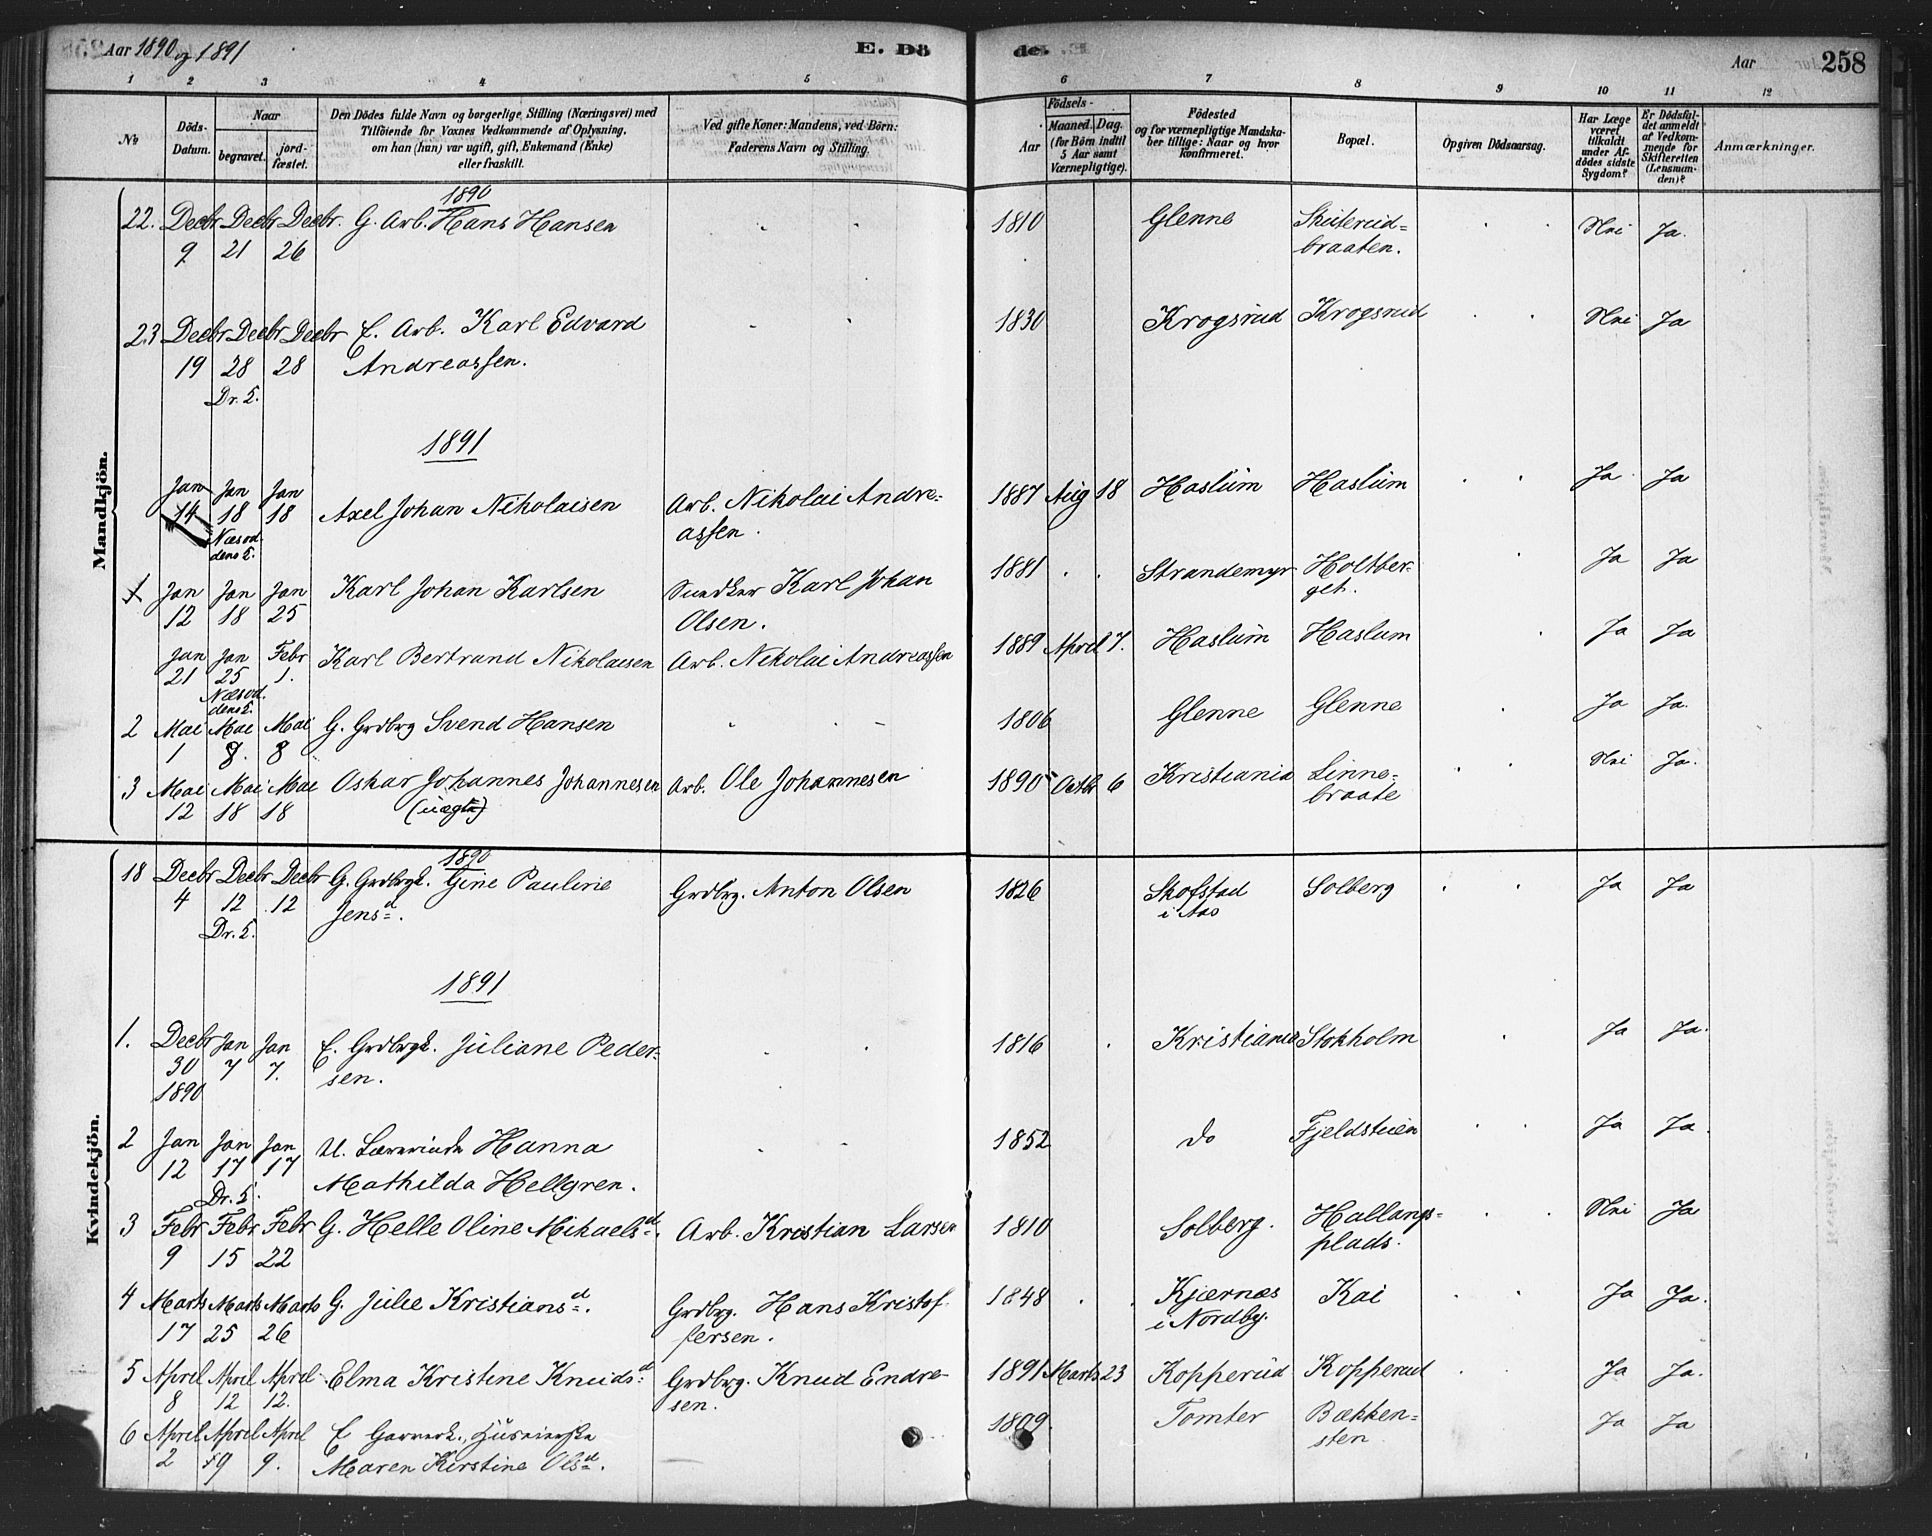 Aar 1890 og 1891 E. Dö de. Aar 258
1 2 3 4 5 6 7 8 9 10 11 12
№ Döds-Datum. Naar begravet. jord-fæstet. Den Dödes fulde Navn og borgerlige Stilling (Næringsvei) med Tilföiende for Voxnes Vedkommende af Oplysning, om han (hun) var ugift, gift, Enkemand (Enke) eller fraskilt. Ved gifte Koner: Mandens, ved Börn: Faderens Navn og Stilling. Födsels- Aar Maaned. Dag. (for Börn indtil 5 Aar samt Værnepligtige). Födested og for værnepligtige Mandskaber tillige: Naar og hvor konfirmeret. Bopæl. Opgiven Dödsaarsag. Har Læge været tilkaldt under Afdödes sidste Sygdom? Er Dödsfaldet anmeldt af Vedkommende for Skifteretten (Lensmanden)? Anmærkninger.
Mandkjön.
1890
22. Decbr Decbr Decbr. G. Arb. Hans Hansen 1810 Glenne Skuterud= Nei Ja.
9 21 26 braaten.
23 Decbr Decbr Decbr E. Arb. Karl Edvard 1830 Krogsrud Krogsrud Nei Ja
19 28 28 Andreassen.
Dr. K.
1891
Jan Jan Jan Axel Johan Nikolaisen Arb. Nikolai Andre= 1887 Aug 18 Haslum Haslum Ja Ja
14 18 18 assen.
Næsoddens K.
1 Jan Jan Jan Karl Johan Karlsen Snedker Karl Johan 1881 Strandemyr Holtber= Ja Ja
12 18 25 Olsen. get.
Jan Jan Febr Karl Bertrand Nikolaisen Arb. Nikolai Andreassen 1889 April 7. Haslum Haslum Ja Ja
21 25 1.
Næsoddens K.
2 Mai Mai Mai G. Grdbrg Svend Hansen 1806 Glenne Glenne Ja Ja.
1 8. 8
3 Mai Mai Mai Oskar Johannes Johannesen Arb. Ole Johannesen 1890 Octbr 6 Kristiania Linne= Nei Ja.
12 18 18 (uægte) braate
Kvindekjön.
1890
18 Decbr Decbr Decbr G. Grdbrgk. Gine Pauline Grdbrg. Anton Olsen 1826 Skofstad Solberg Ja Ja
4 12 12 Jensd. i Aas
Dr. K.
1891
1. Decbr Jan Jan E. Grdbrgk. Juliane Peder= 1816 Kristiania Stokholm Ja Ja.
30 7 7. sen.
1890
2 Jan Jan Jan U. Lærerinde Hanna 1852 do Fjeldstuen Ja Ja.
12 17 17 Mathilda Hellgren.
Dr. K.
3 Febr Febr Febr G. Helle Oline Mikaelsd. Arb. Kristian Larsen 1810 Solberg. Hallangs= Nei Ja
9 15 22 plads.
4 Marts Marts Marts G. Julie Kristiansd. Grdbrg. Hans Kristof= 1848 Kjærnæs Kai Ja Ja.
17 25 26 fersen. i Nordby.
5 April April April Elma Kristine Knudsd. Grdbrg. Knud Endre= 1891 Marts 23 Kopperud Kopperud Ja Ja.
8 12 12. sen.
6 April April April E Huseierske 1809. Tomter Bækken= Ja Ja
2 9 9. Maren Kirstine Olsd. sten